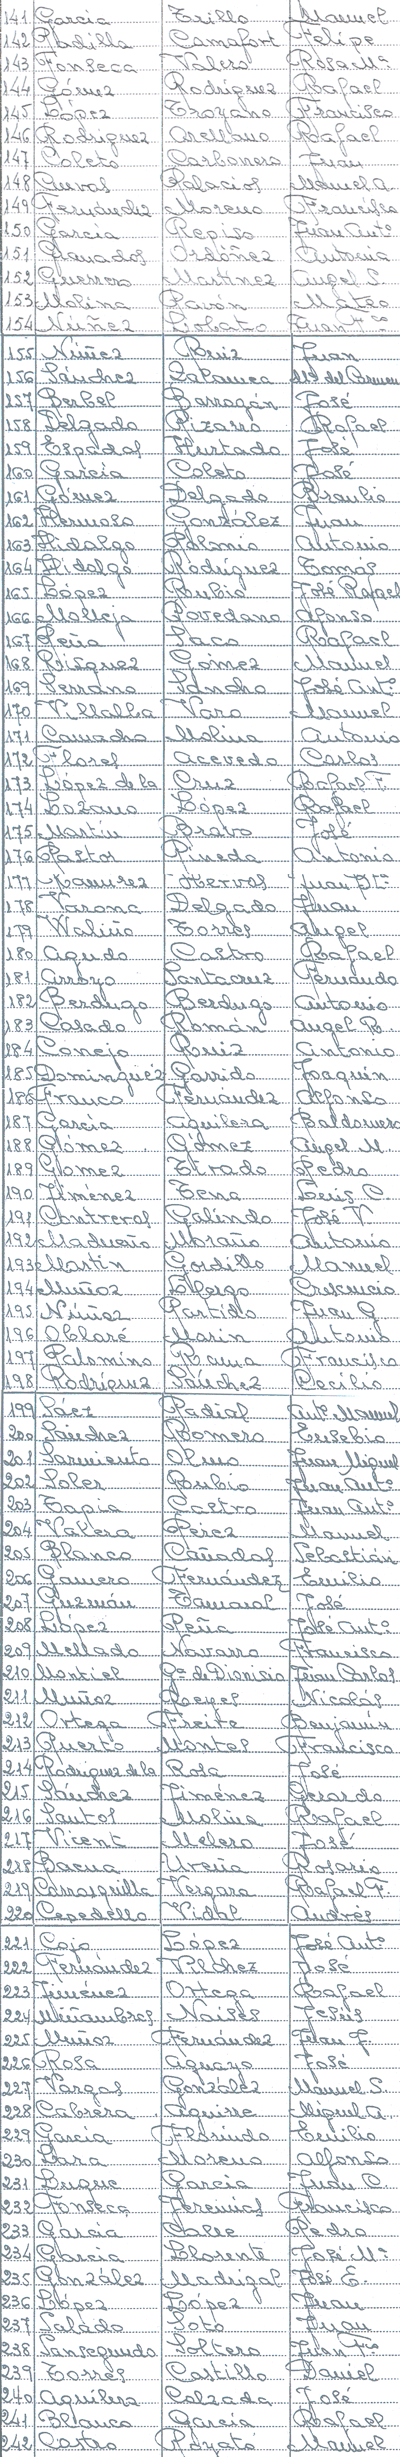 141 Garcia Trillo Manuel
142 Padilla Camafort Felipe
143 Fonseca Valero Rosa Mª
144 Gómez Rodríguez Rafael
145 López Troyano Francisco
146 Rodriguez Arellano Rafael
147 Coleto Carbonero Juan
148 Cuevas Palacios Manuel A.
149 Fernández Moreno Francisco
150 García Repiso Juan Antº
151 Granados Ordóñez Antonia
152 Guerrero Martínez Angel S.
153 Molina Pavón Mateo
154 Núñez Lobato Juan Fco
155 Núñez Ruiz Juan
156 Sánchez Zabauca Mª del Carmen
157 Berbel Barragán José
158 Delgado Pizarro Rafael
159 Espadas Hurtado José
160 García Coleto José
161 Gómez Delgado Braulio
162 Hermoso González Juan
163 Hidalgo Palomo Antonio
164 Hidalgo Rodríguez Tomás
165 López Rubio José Rafael
166 Molleja Povedano Alfonso
167 Peña Paco Rafael
168 Rísquez Gómez Manuel
169 Serrano Sancho José Antº
170 Villalba Varo Manuel
171 Camacho Molina Antonio
172 Flores Acevedo Carlos
173 López de la Cruz Rafael F.
174 Lozano López Rafael
175 Martín Bravo José
176 Pastor Pineda Antonia
177 Ramírez Hervas Juan Btª
178 Varoma Delgado Juan
179 Waliño Torres Angel
180 Agudo Castro Rafael
181 Arroyo Santacruz Fernando
182 Berdugo Berdugo Antonio
183 Casado Román Angel B.
184 Conejo Ruiz Antonio
185 Dominguez Garrido Joaquín
186 Franco Fernández Alfonso
187 García Aguilera Baldomero
188 Gómez Gómez Angel M.
189 Gómez Tirado Pedro
190 Jiménez Tena Luis C.
191 Contreras Galindo José V.
192 Madueño Moraño Antonio
193 Martín Gordillo Manuel
194 Muñoz Crescencio
195 Núñez Partido Juan G.
196 Oblaré Marin Antonio
197 Palomino Rama Francisco
198 Rodríguez Sánchez Cecilio
199 Sáez Padial Antº Manuel
200 Sánchez Romero Eusebio
201 Sarmiento Olmo Juan Miguel
202 Soler Rubio Juan Antº
203 Tapia Castro Juan Antº
204 Valera Pérez Manuel
205 Blanco Cañadas Sebastián
206 Gamero Fernández Emilio
207 Guzmán Tamaral José
208 López Peña José Antº
209 Mellado Navarro Francisco
210 Montiel Gª de Dionisia Juan Carlos
211 Muñoz Reyes Nicolás
212 Ortega Freire Benjamín
213 Puerto Montes Francisco
214 Rodríguez de la Rosa José
215 Sánchez Jiménez Gerardo
216 Santos Molina Rafael
217 Vicent Melero José
218 Baena Ureña Rosario
219 Carrasquilla Vergara Rafael F.
220 Cepedello Vidal Andrés
221 Cojo López José Antº
222 Fernández Vílchez José
223 Jiménez Ortega Rafael
224 Miñambres Naises Jesús
225 Muñoz Fernández Juan F.
226 Rosa Aguayo José
227 Vargas González Manuel S.
228 Cabrera Aguirre Miguel A.
229 García Florindo Emilio
230 Lara Moreno Alfonso
231 Luque García Juan C.
232 Fonseca Jeremías Francisco
233 García Calle Pedro
234 García Llorente José Mª
235 González Madrigal José E.
236 López López Juan
237 Salado Soto Juan
238 Sansegundo Soltero Juan Fco
239 Torres Castillo Daniel
240 Aguilera Calzada José
241 Blanco García Rafael
242 Castro Manuel